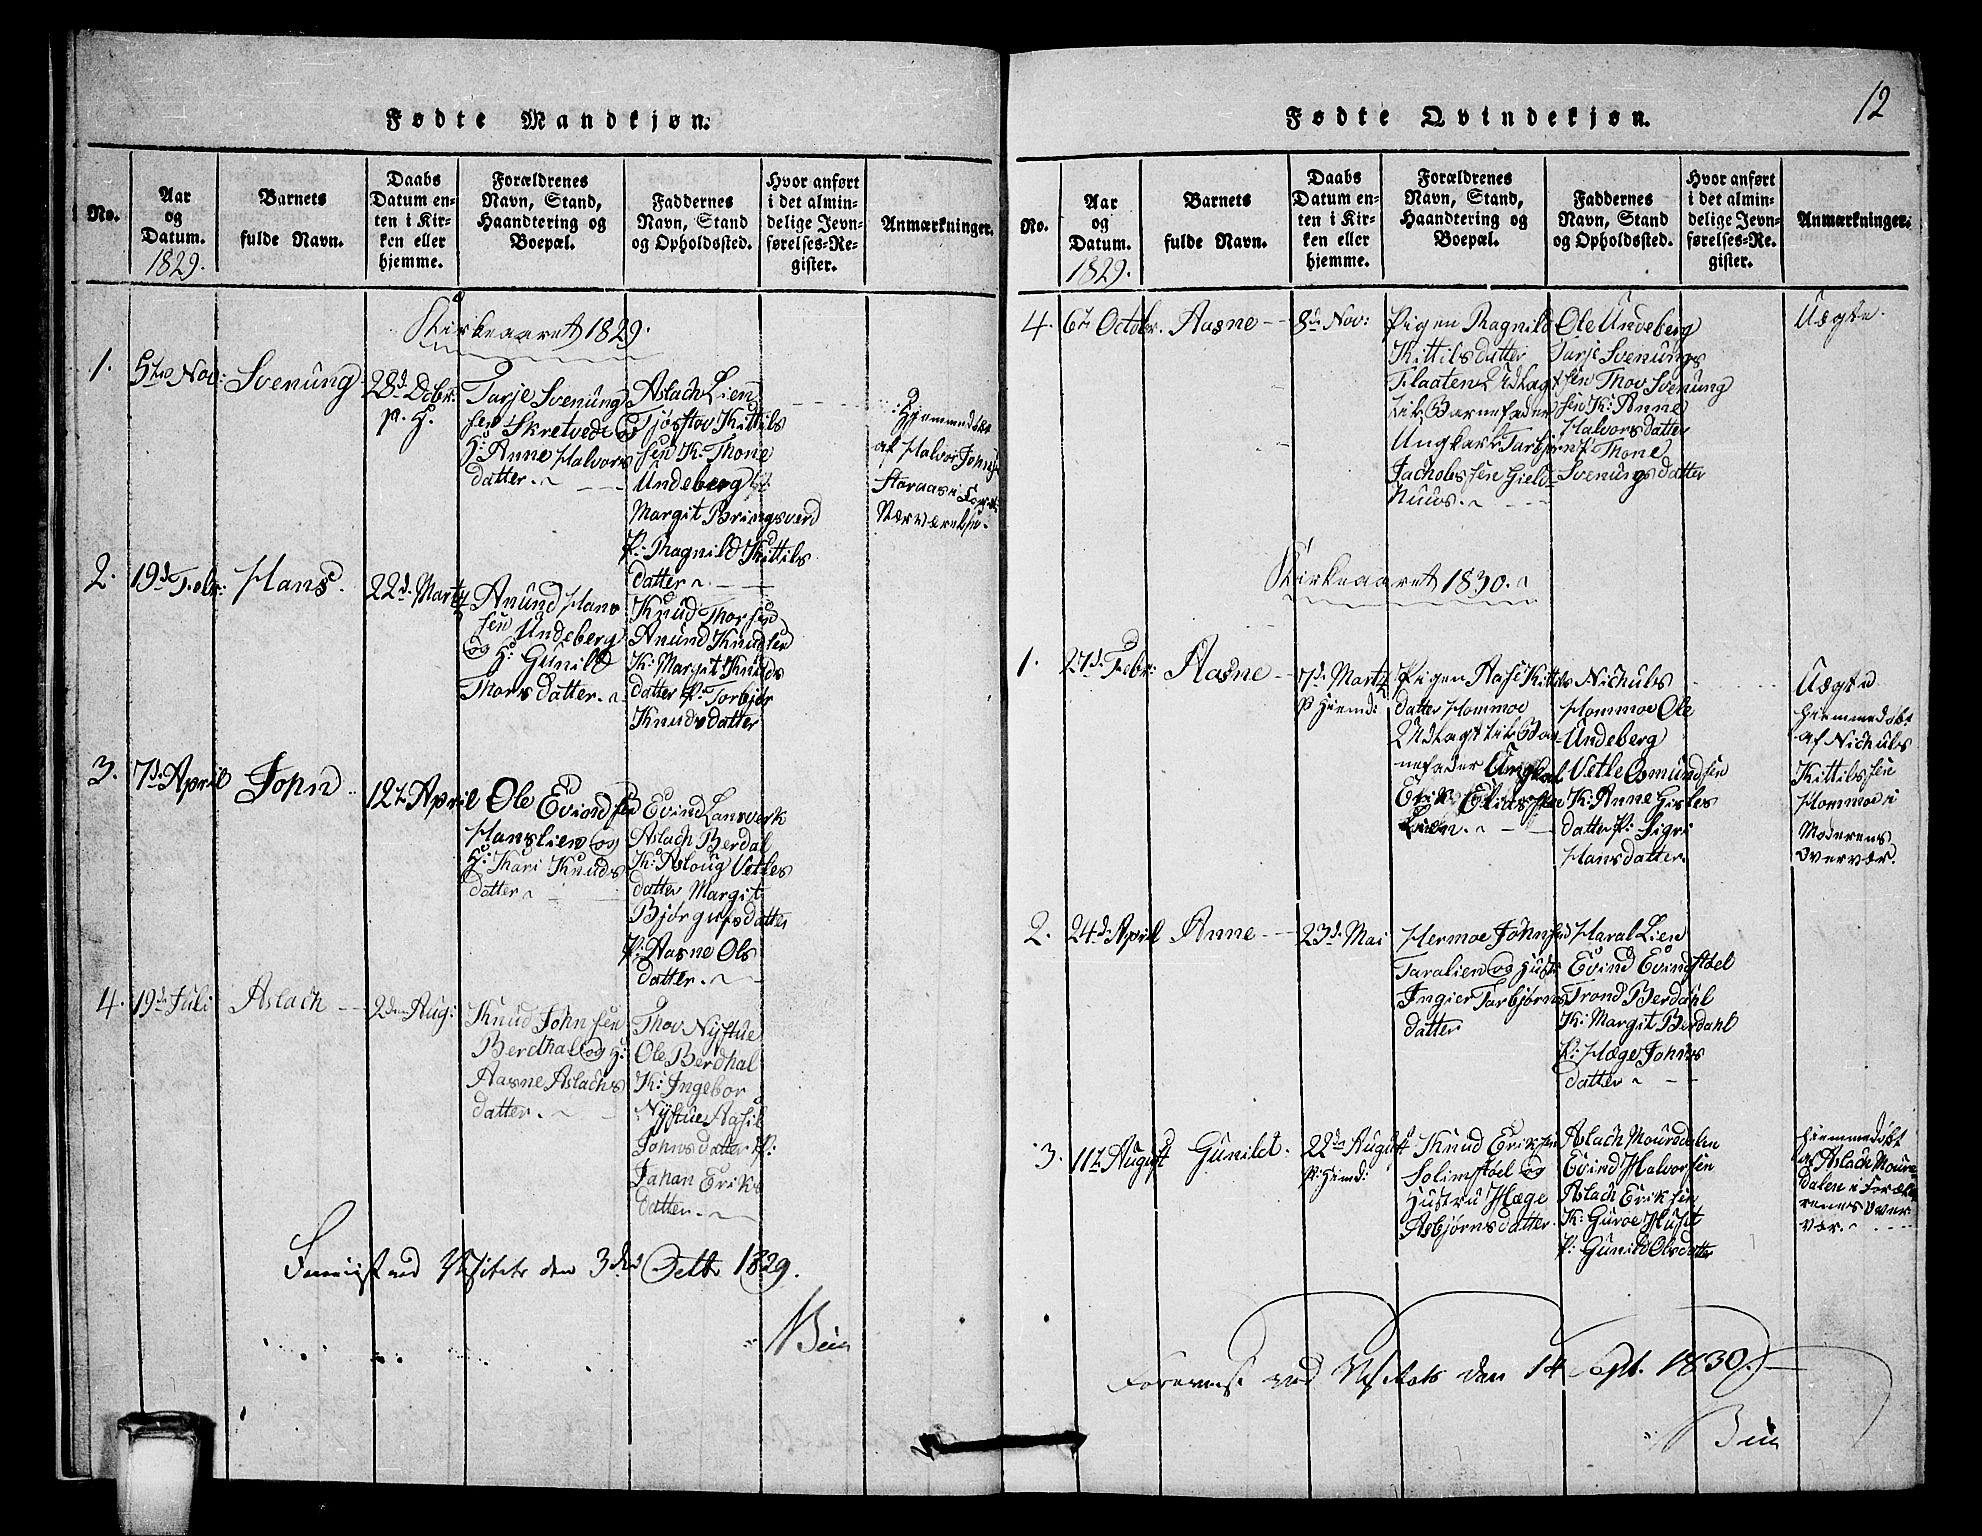 Fødte Mandkjøn.
No.
Aar
og
Datum.
1829.
Barnets
fulde Navn.
Daabs
Datum en-
ten i Kir-
ken eller
hjemme.
Forældrenes
Navn, Stand,
Haandtering og
Boepæl.
Faddernes
Navn, Stand
og Opholdssted.
Hvor anført
i det almin-
delige Jevn-
førelses-Re-
gister.
Anmærkninger.
Kirkeaaret 1829.
1.
5te Nov:
Svenung
28d. Dcbr:
p. H.
Tarje Svenung
sen Skretvedt og
H: Anne Halvors
datter.
Aslach Lien
Tjøstov Kittils
sen K. Thone
Undeberg
Margit Bringsverd
P: Ragnild Kittils
datter
Hjemmedøbt
af Halvor Johns
Storaas i
Nærværelse.
2.
19d. Febr:
Hans.
22d. Martz
Anund Hans
sen Undeberg
og H: Gunild
Thors datter.
Knud Thorsen
Anund Knudsen
K: Margit Knuds
datter P: Torbjør
Knudsdatter
3.
7d. April
John
12t. April
Ole Evindsen
Hanslien og
H: Kari Knuds
datter
Evind Lansverk
Aslach Berdal
K: Asloug Vetles
datter Margit
Bjørgufsdatter
P: Aasne Ols
datter.
4.
19de Juli
Aslach
2den Aug:
Knud Johnsen
Berdhal og H:
Aasne Aslachs
datter.
Thov Nystue
Ole Berdhal
K: Ingebor
Nystue Aasil
Johnsdatter P:
Johan Eriks
datter.
ved Visitats den 3die Octbr 1829.
Fødte Qvindekjøn.
12
No.
Aar
og
Datum.
1829.
Barnets
fulde Navn.
Daabs
Datum en-
ten i Kir-
ken eller
hjemme.
Forældrenes
Navn, Stand,
Haandtering og
Boepæl.
Faddernes
Navn, Stand
og Opholdssted.
Hvor anført
i det almin-
delige Jevn-
førelses-Re-
gister.
Anmærkninger.
4.
6te Octobr.
Aasne
8de Nov:
Pigen Ragnild
Kittilsdatter
Flaaten Udlagt
til Barnefader
Ungkarl Tarbjørn
Jachobssen Gield-
Nuus.
Ole Undeberg
Tarje Svenungs
sen Thov Svenung
sen K: Anne
Halvorsdatter
P: Thone
Svenungsdatter
Uægte.
Kirkeaaret 1830.
1.
27d. Febr:
Aasne
7d. Martz
p Hiemd:
Pigen Aase Kittils
datter Hommoe
Udlagt til Bar-
nefader Ungkal
Erik Eliassen
Lien.
Nichuls
Hommoe Ole
Undeberg
Vetle Osmundsen
K: Anne Gisles
datter P: Sigri
Hansdatter.
Uægte
Hiemmedøbt
af Nichuls
Kittilssen
Hommoe i
Moderens
Overvær.
2.
24d. April
Anne
23d. Mai
Hermoe Johnsen
Taralien og Hust:
Ingier Tarbjørns
datter
Haral Lien
Evind Evindstøel
Trond Berdahl
K: Margit Berdahl
P: Hæge Johns
datter
3.
11t. August
Gunild.
22de August
p: Hiemd:
Knud Eriksen
Solimstøel og
Hustru Hæge
Asbjørnsdatter.
Aslach Mouradalen
Evind Halvorsen
Aslach Eriksen
K: Guroe Huset
P: Gunild Olsdatter
Hiemmedøbt
af Aslach Moura
dalen i Foræld
renes Over
vær.
Foreviist ved Visitats den 14 Sept. 1830.